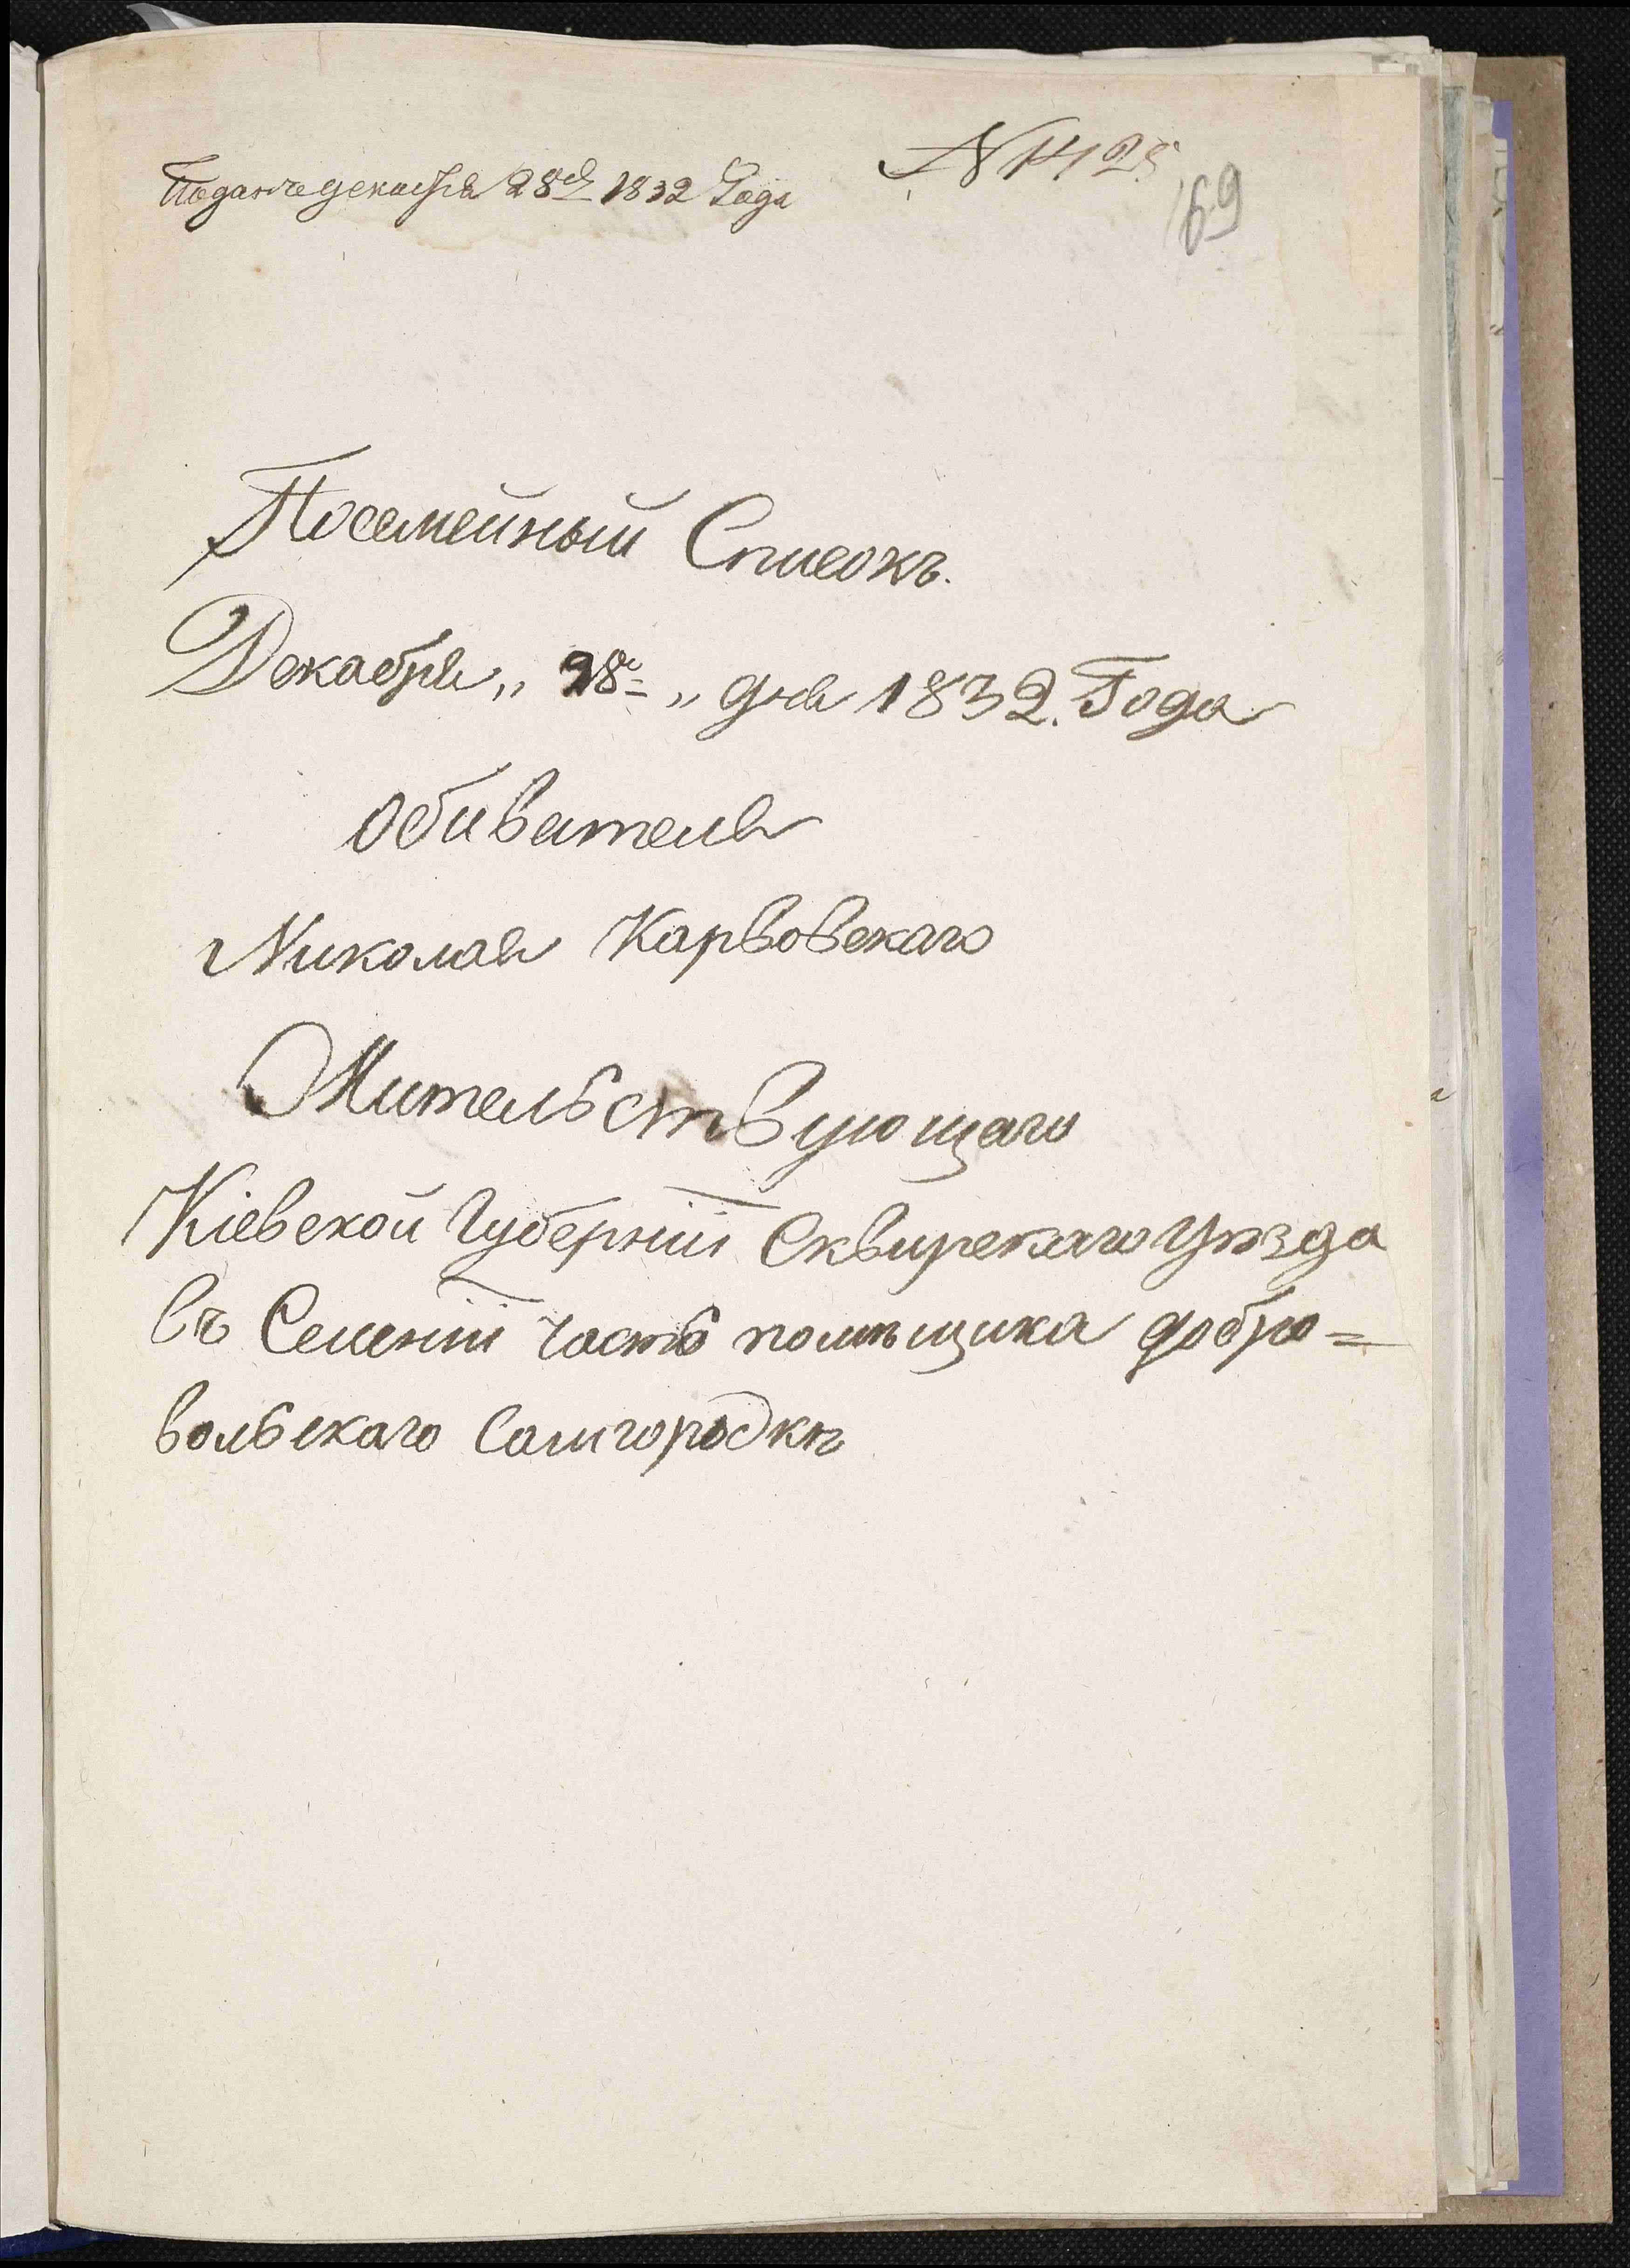 Поданъ декабря 28го 1832 Года
№ 1425
169
Посемейный Списокъ.
Декабря „ 28е „ дня 1832. Года
Обивателя
Николая Карвовскаго
Жительствующаго
Кіевской Губерніи Сквирскаго Уѣзда
въ Селеніи часть помѣщика добро=
вольскаго Самгородкѣ